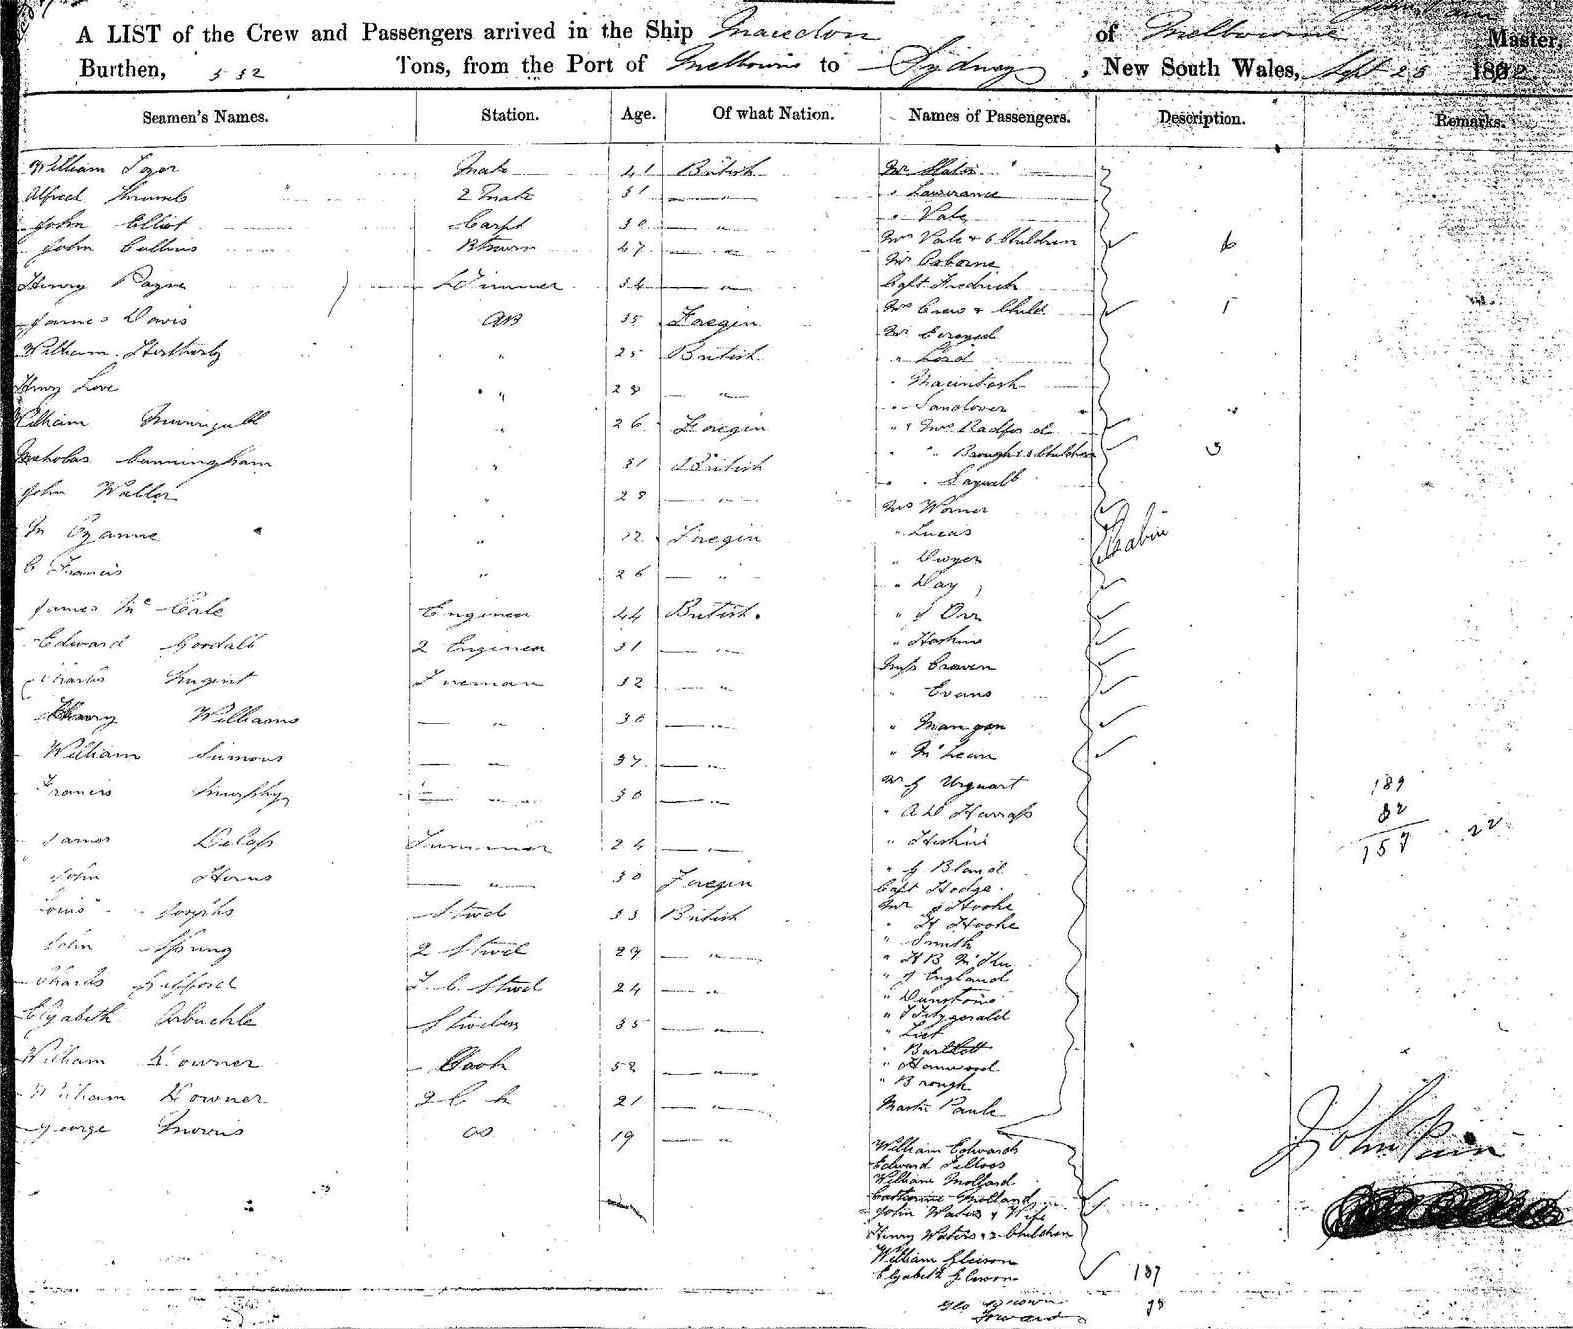 A LIST of the Crew and Passengers arrived in the Ship Macedon of Melbourne Master,
Burthen, 532 Tons, from the Port of Melbourne to Sydney, New South Wales, Sept 25 18
Seamen's Names. Station. Age. Of what Nation. Names of Passengers. Description. Remarks.
William Mate 41 British Mr
Alfred 2 Mate 31 — " — " Lawrance
John Elliot Carpt 30 — " " Vale
John Collins 47 — " — Mrs Vale & 6 Children 6
Mr Osborne
Henry Payne 34 — " — Capt Fredrich
James Davis AB 35 Foregin Mrs Crew & Child 1
Mr
William " 25 British " Lord
Henry Love " 28 — " " Macintosh
" Sandover
William " 26 Foregin " & Mrs Radford
Nicholas Cunningham " 31 British " " Brough & 3 Children 3
John Waller " 28 — " "
Mrs Warner
M Ozanne " 22 Foregin " Lucas Cabin
" Dwyer
C Francis " 26 — " " Day
James Mc Cale Engineer 44 British. " J Orr
Edward Goodall 2 Engineer 31 — " " Hoskins
Miss Craven
Charles Nugent Fireman 32 — " " Evans
Henry Williams — " 30 — " " Mangan
William Simons — " 37 — " " McLean
Francis Murphy — " 30 — " Mr J Urquart 189
" A D Harrass 32
James Trimmer 24 — " " Hoskins 157 22
" J Bland
John — " 30 Foregin Capt Hodge
Louis Josephs Stwd 33 British Mr J Hooke
" H Hooke
John Spring 2 Stwd 29 — " " Smith
" H B
Charles Gifford F. C. Stwd 24 — " " J England
" Dunstone
Elyabith Arbuchle Stwdess 35 — " " Fitzgerald
" List
" Bartlett
William Downer Cook 52 — " " Hanwood
" Brough
William Downer 2 C k 21 — " Master Paule
George Morris OS 19 — "
William Edwards John Pain
Edward
William Mollard
Catherine Molland
John Waters & Wife
Henry Waters & 2 Children
William Gleeson
Elyabith Gleeson 157
Geo Brown
Forward